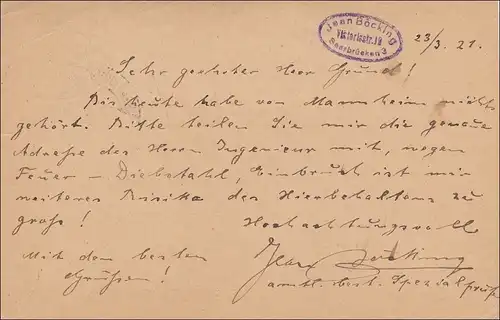 Jean Böcking
Viktoriastr.
Saarbrücken 3
23/3. 21.
Sehr geehrter Herr Grund!
Bis heute habe von Mannheim nichts
gehört. Bitte teilen Sie mir die genaue
Adresse des Herrn Ingenieur mit, wegen
Feuer – Diebstahl, Einbruch ist mir
weiteres Risiko des Hierbehaltens zu
groß!
Hochachtungsvoll
Mit den besten
Grüßen!
Jean Böcking
amtl. best. Spezial